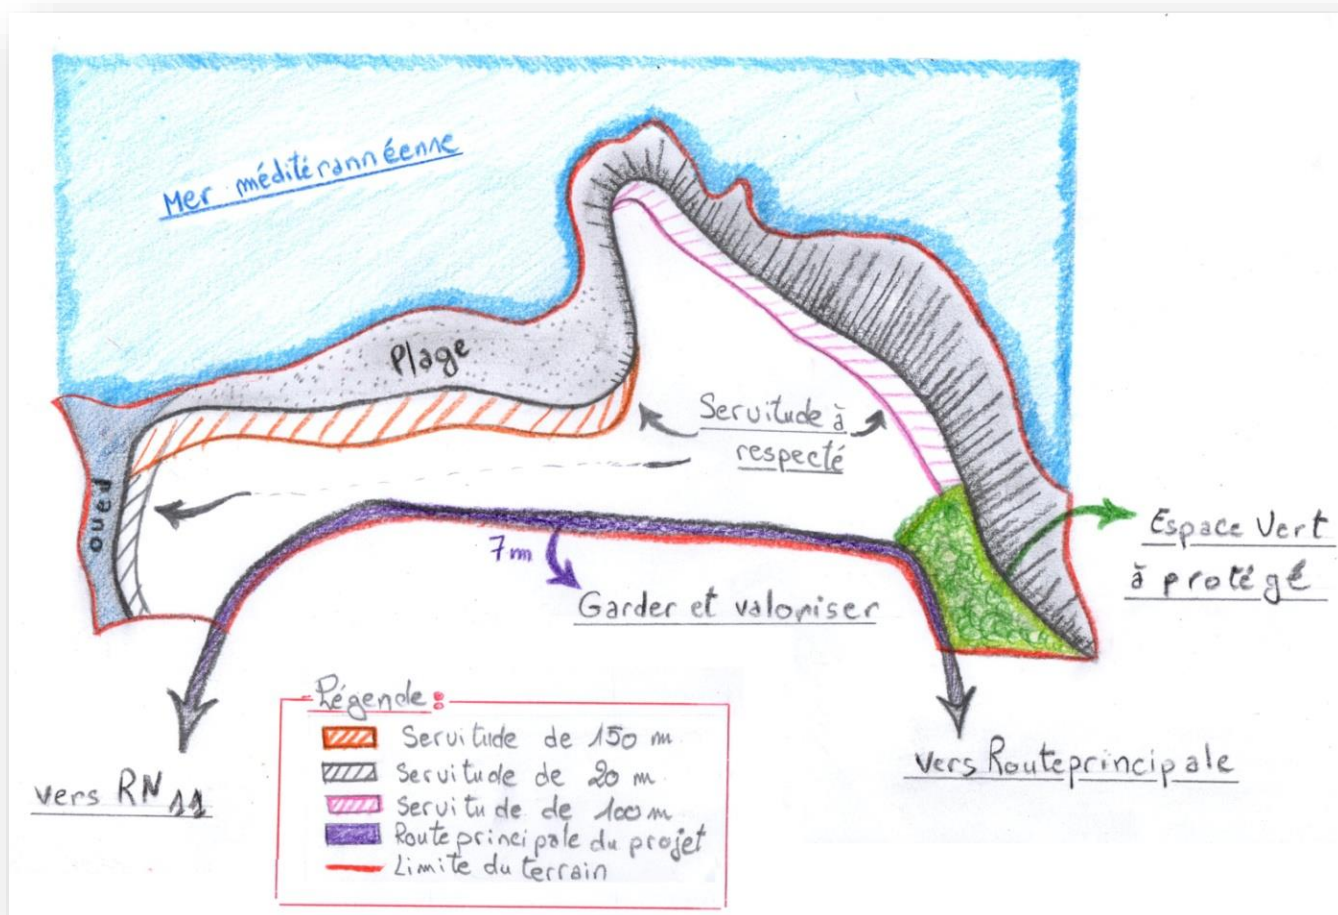 Mer méditérannéenne
Plage
Servitude à
respecté
oued
7m
Garder et valoriser
Espace Vert
à protégé
vers RN 11
vers Route principale
Légende :
Servitude de 150 m
Servitude de 20 m
Servitude de 100m
Route principale du projet
Limite du terrain